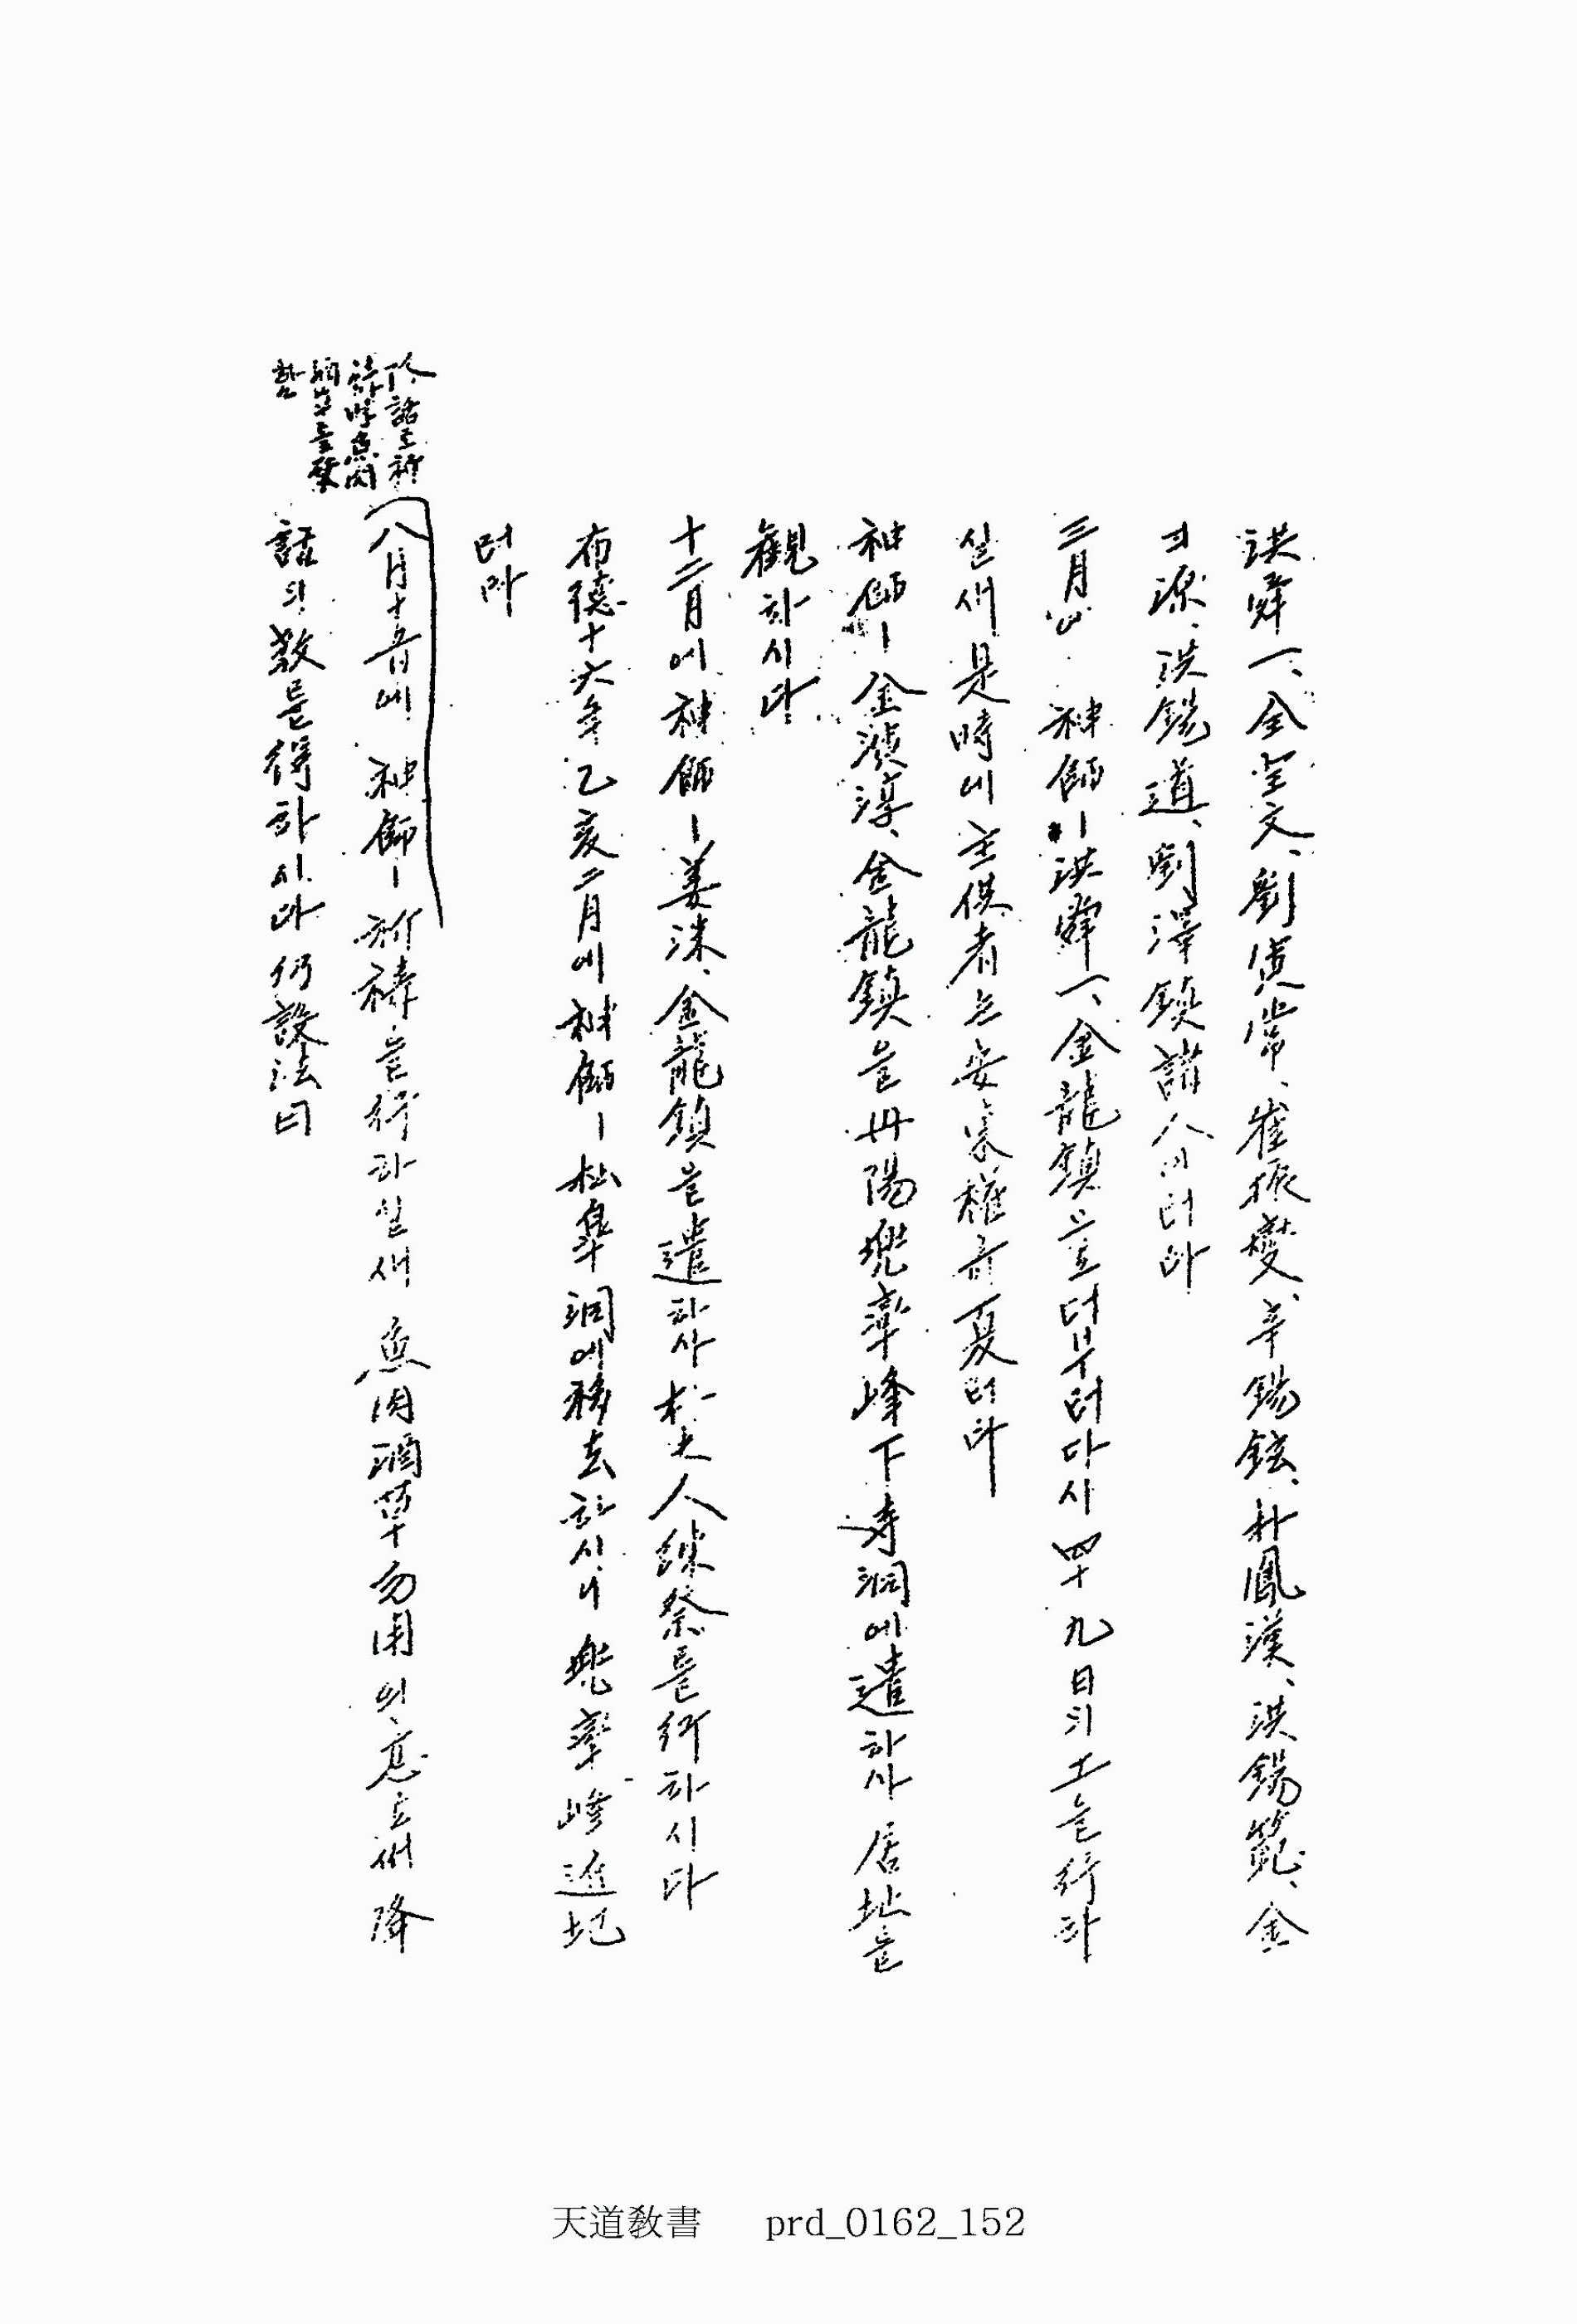 洪舜一、全聖文、劉寅常、崔振燮、辛錫鉉、朴鳳漢、洪錫範、金
源、洪錫道、劉澤鎭諸人이더라
三月에 神師ㅣ洪舜一、金龍鎭으로더부러다시四十九日工을行하
실새是時에主供者는安東權奇夏더라
神師ㅣ金演淳、金龍鎭을丹陽兜率峰下寺洞에遣하사居址를
觀하시다
十二月에神師ㅣ姜洙、金龍鎭을遣하사朴夫人練祭를行하시다
布德十六年乙亥二月에神師ㅣ松皐洞에移去하시니兜率峰近地
더라
降話로祈禱時魚肉
酒草를廢
함
八月十五日에 神師ㅣ祈禱를行하실새魚肉酒草勿用의意로써降
話의敎를得하시다仍設法曰
天道敎書 prd_0162_152